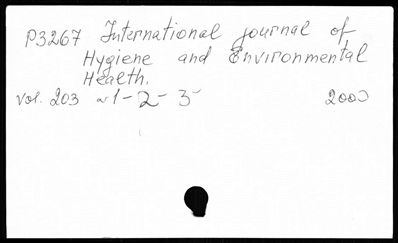 P3267 International journal of
Hygiene and Environmental
Health.
vol. 203 №1-2-3- 2000